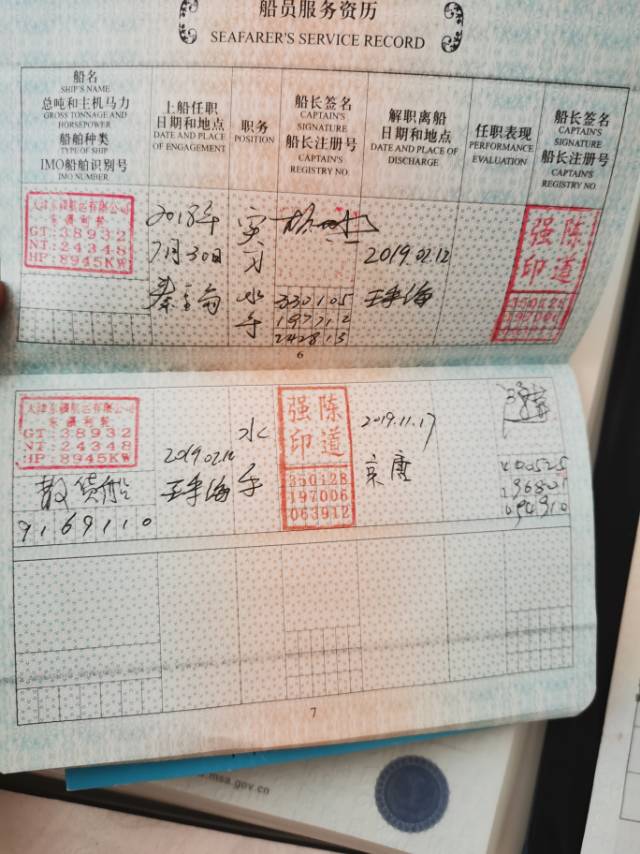 船员服务资历
SEAFARER'S SERVICE RECORD
船名
SHIP'S NAME
总吨和主机马力
GROSS TONNAGE AND
HORSEPOWER
船舶种类
TYPE OF SHIP
IMO船舶识别号
IMO NUMBER
上船任职
日期和地点
DATE AND PLACE
OF ENGAGEMENT
职务
POSITION
船长签名
CAPTAIN'S
SIGNATURE
船长注册号
CAPTAIN'S
REGISTRY NO
解职离船
日期和地点
DATE AND PLACE OF
DISCHARGE
任职表现
PERFORMANCE
EVALUATION
船长签名
CAPTAIN'S
SIGNATURE
船长注册号
CAPTAIN'S
REGISTRY NO.
GT:38932
NT:24348
HP:8945KW
2018年
7月30日
秦皇岛
实
习
水
手
330105
197712
2019.02.12
强陈
印道
350128
197006
6
GT:38932
NT:24348
HP:8945KW
散货船
9169110
2019.02.12
水
手
强陈
印道
350128
197006
063912
2019.11.17
京唐
7
.msa.gov.cn